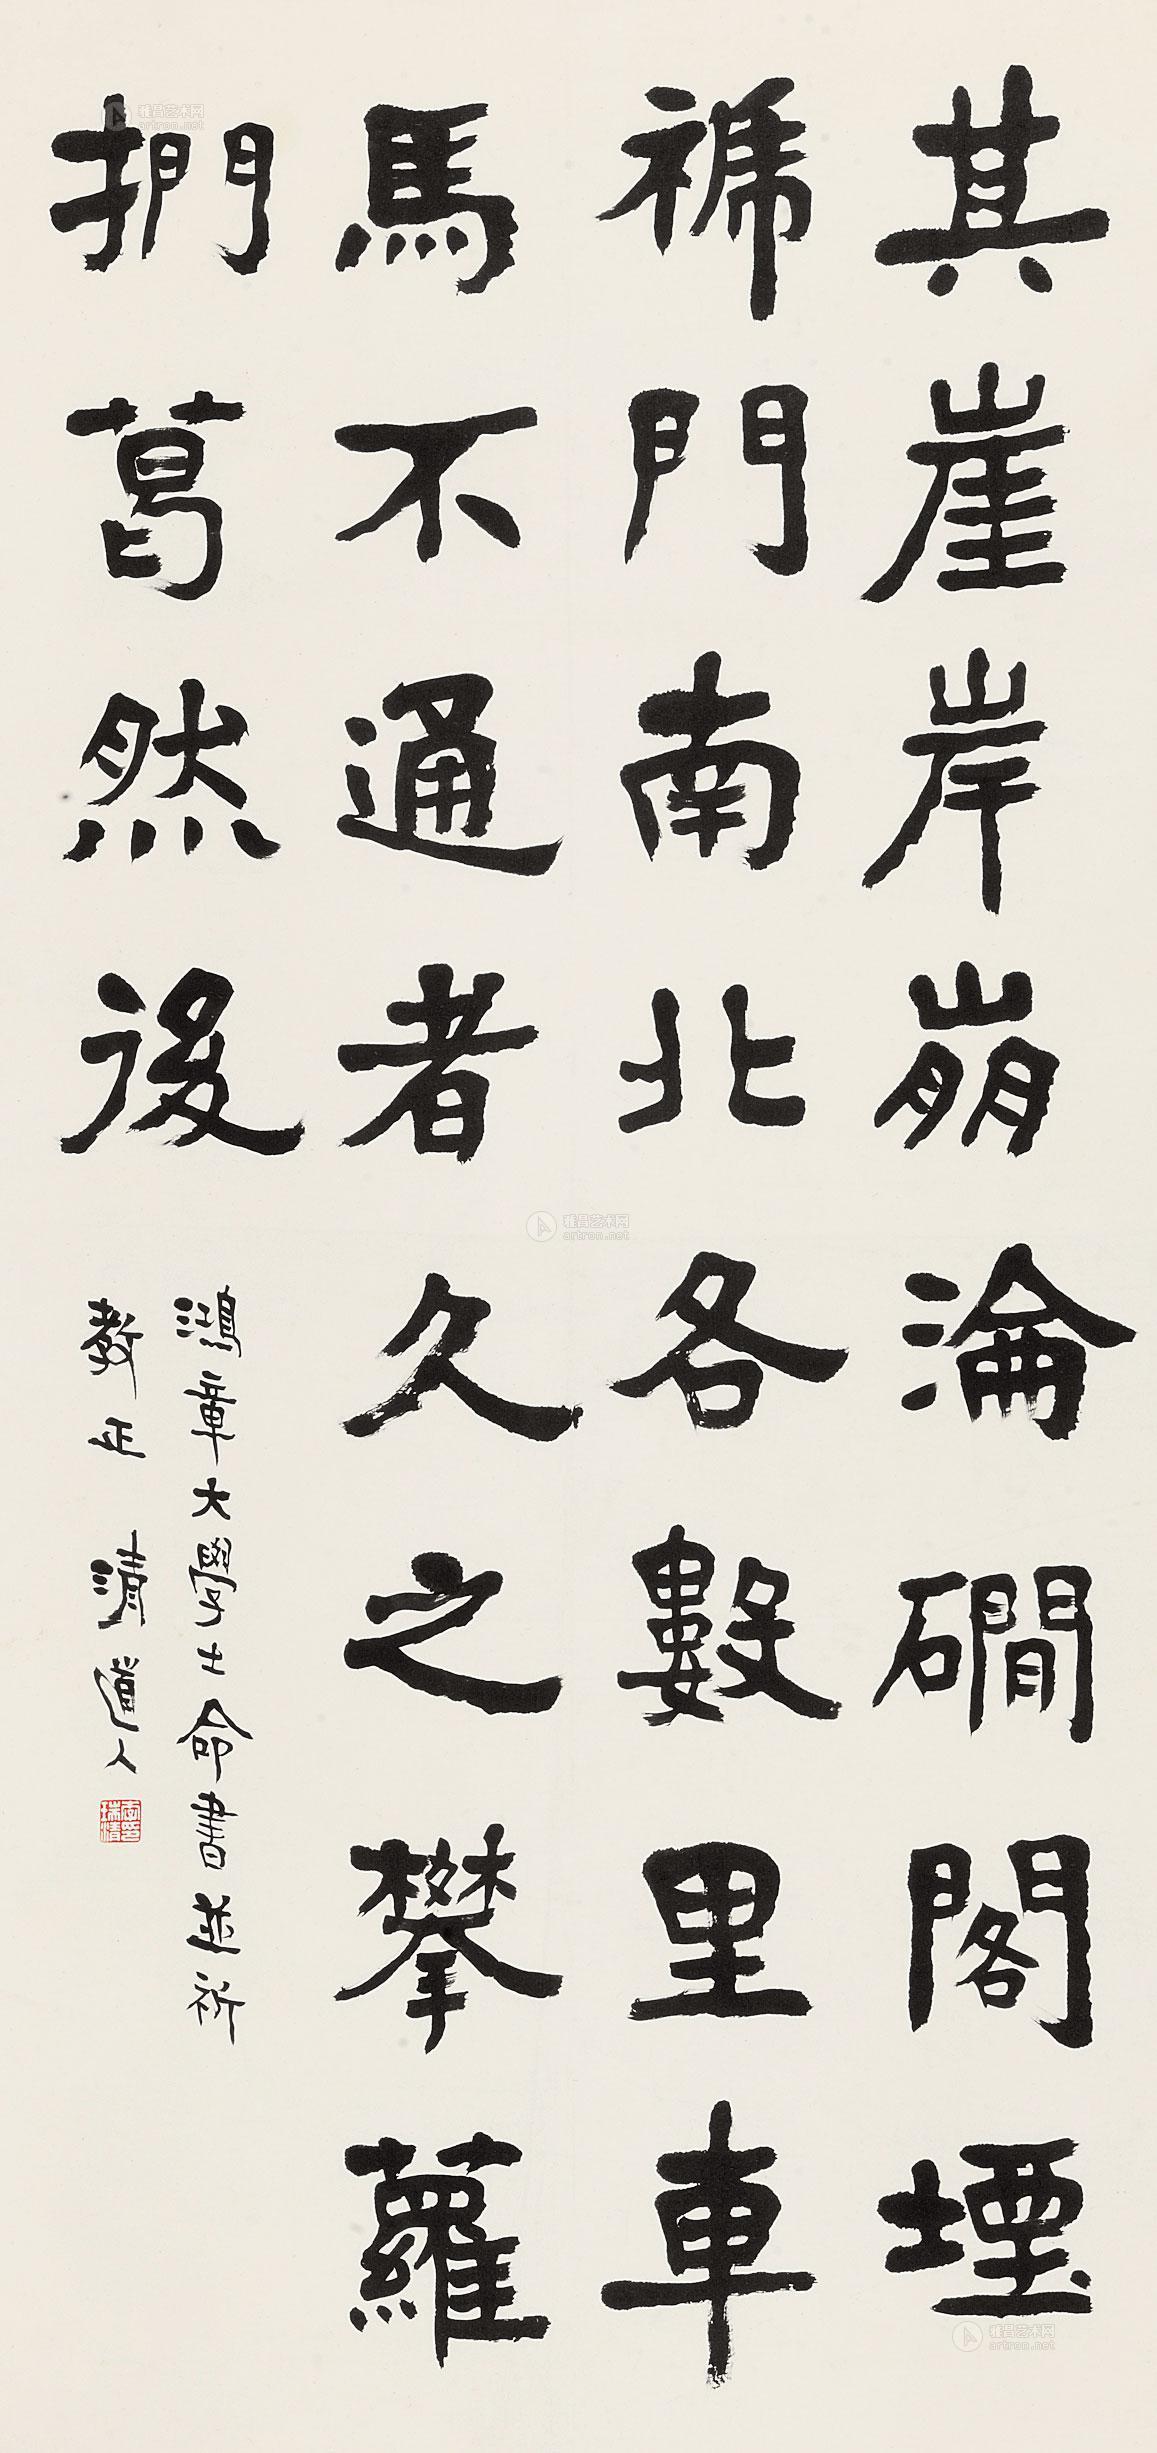 其崖岸崩淪磵閣堙
禠門南北各數里車
馬不通者久之攀蘿
捫葛然後
鴻章大學士命書並祈
教正 清道人
李印瑞清
雅昌艺术网
artron.net
雅昌艺术网
artron.net
雅昌艺术网
artron.net